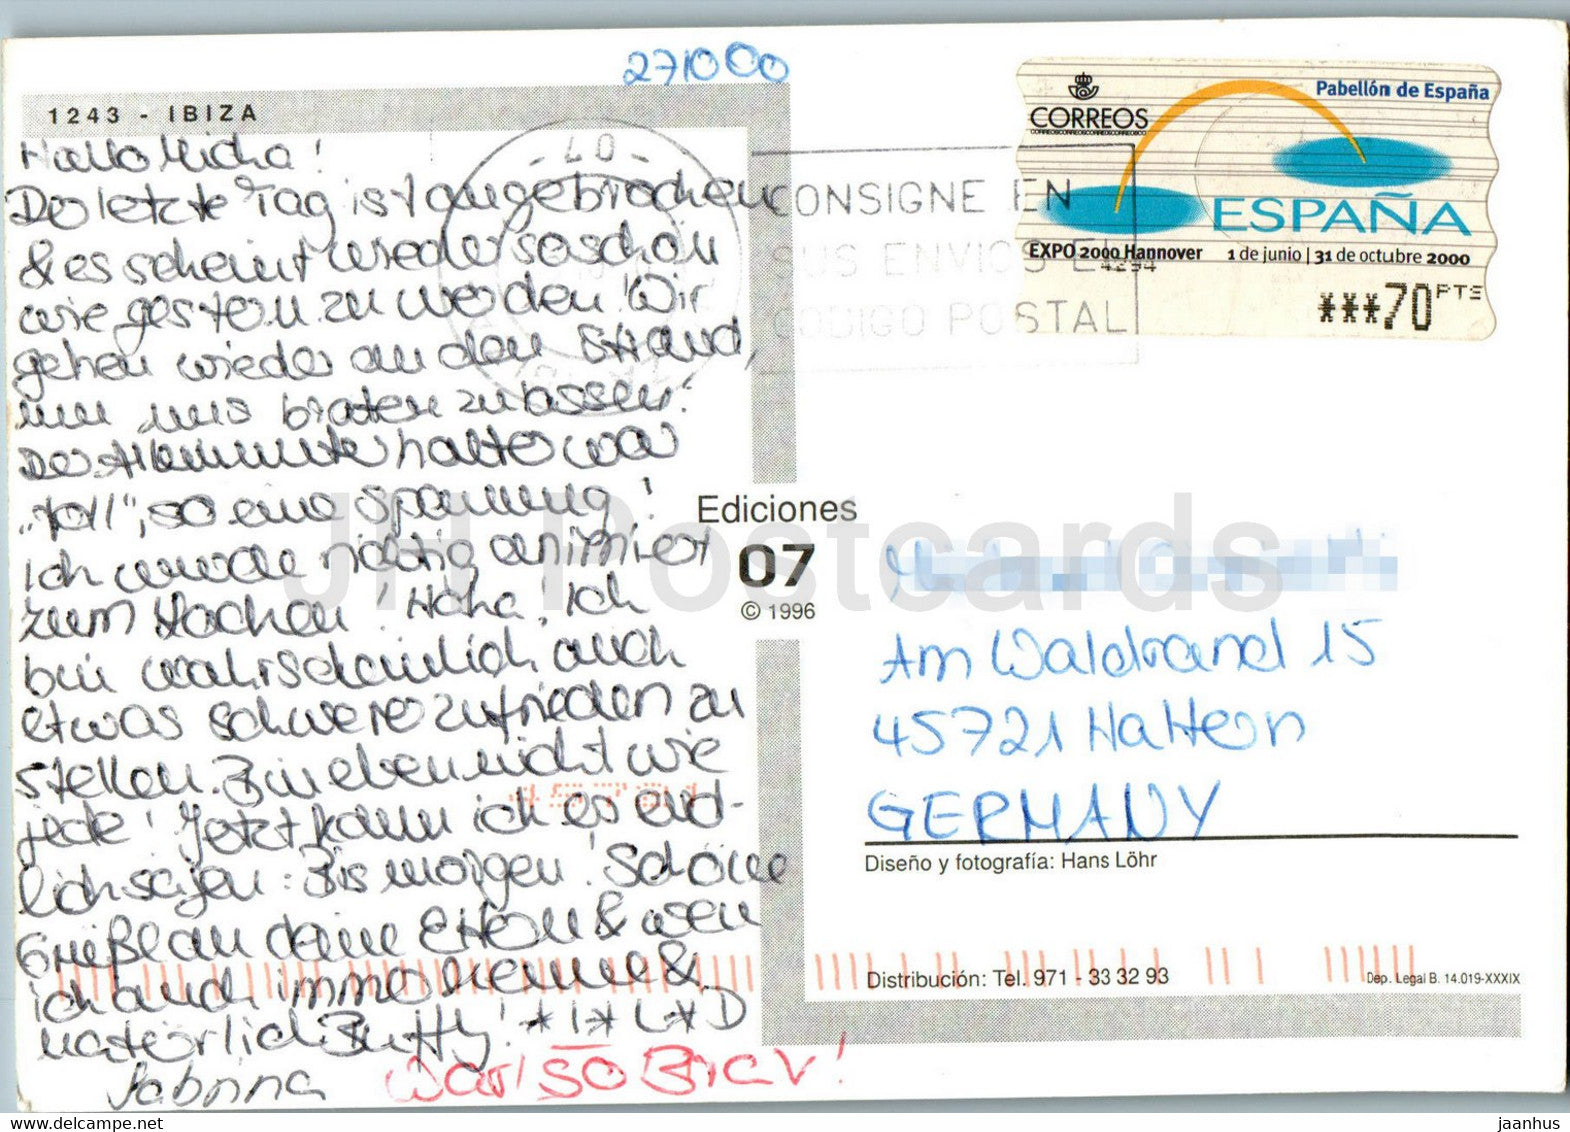 271000
1243 - IBIZA
Hallo Micha!
Der letzte Tag ist angebrochen
& es scheint wieder so schön
wie gestern zu werden! Wir
gehen wieder an den Strand,
um uns braten zu lassen!
Der Alleinunterhalter war
„toll“, so eine Spannung!
Ich wurde richtig animiert
zum Lachen! Haha! Ich
bin wahrscheinlich auch
etwas schwerer zufrieden zu
stellen. Bin eben nicht wie
jede! Jetzt kann ich es end-
lich sagen: Bis morgen! Schöne
Grüße an deine Eltern & wen
ich auch immer kenne &
natürlich Buffy! *I*L*D
Sabrina
War! SO Brav!
CORREOS
Pabellón de España
ESPAÑA
EXPO 2000 Hannover 1 de junio | 31 de octubre 2000
***70 PTS
- 07 -
CONSIGNE EN
SUS ENVIOS EL
CODIGO POSTAL
Ediciones
07
© 1996
JH Postcards
Am Waldrand 15
45721 Haltern
GERMANY
Diseño y fotografía: Hans Löhr
45721
Distribución: Tel. 971 - 33 32 93
Dep. Legal B. 14.019-XXXIX
www.delcampe.net
jaanhus